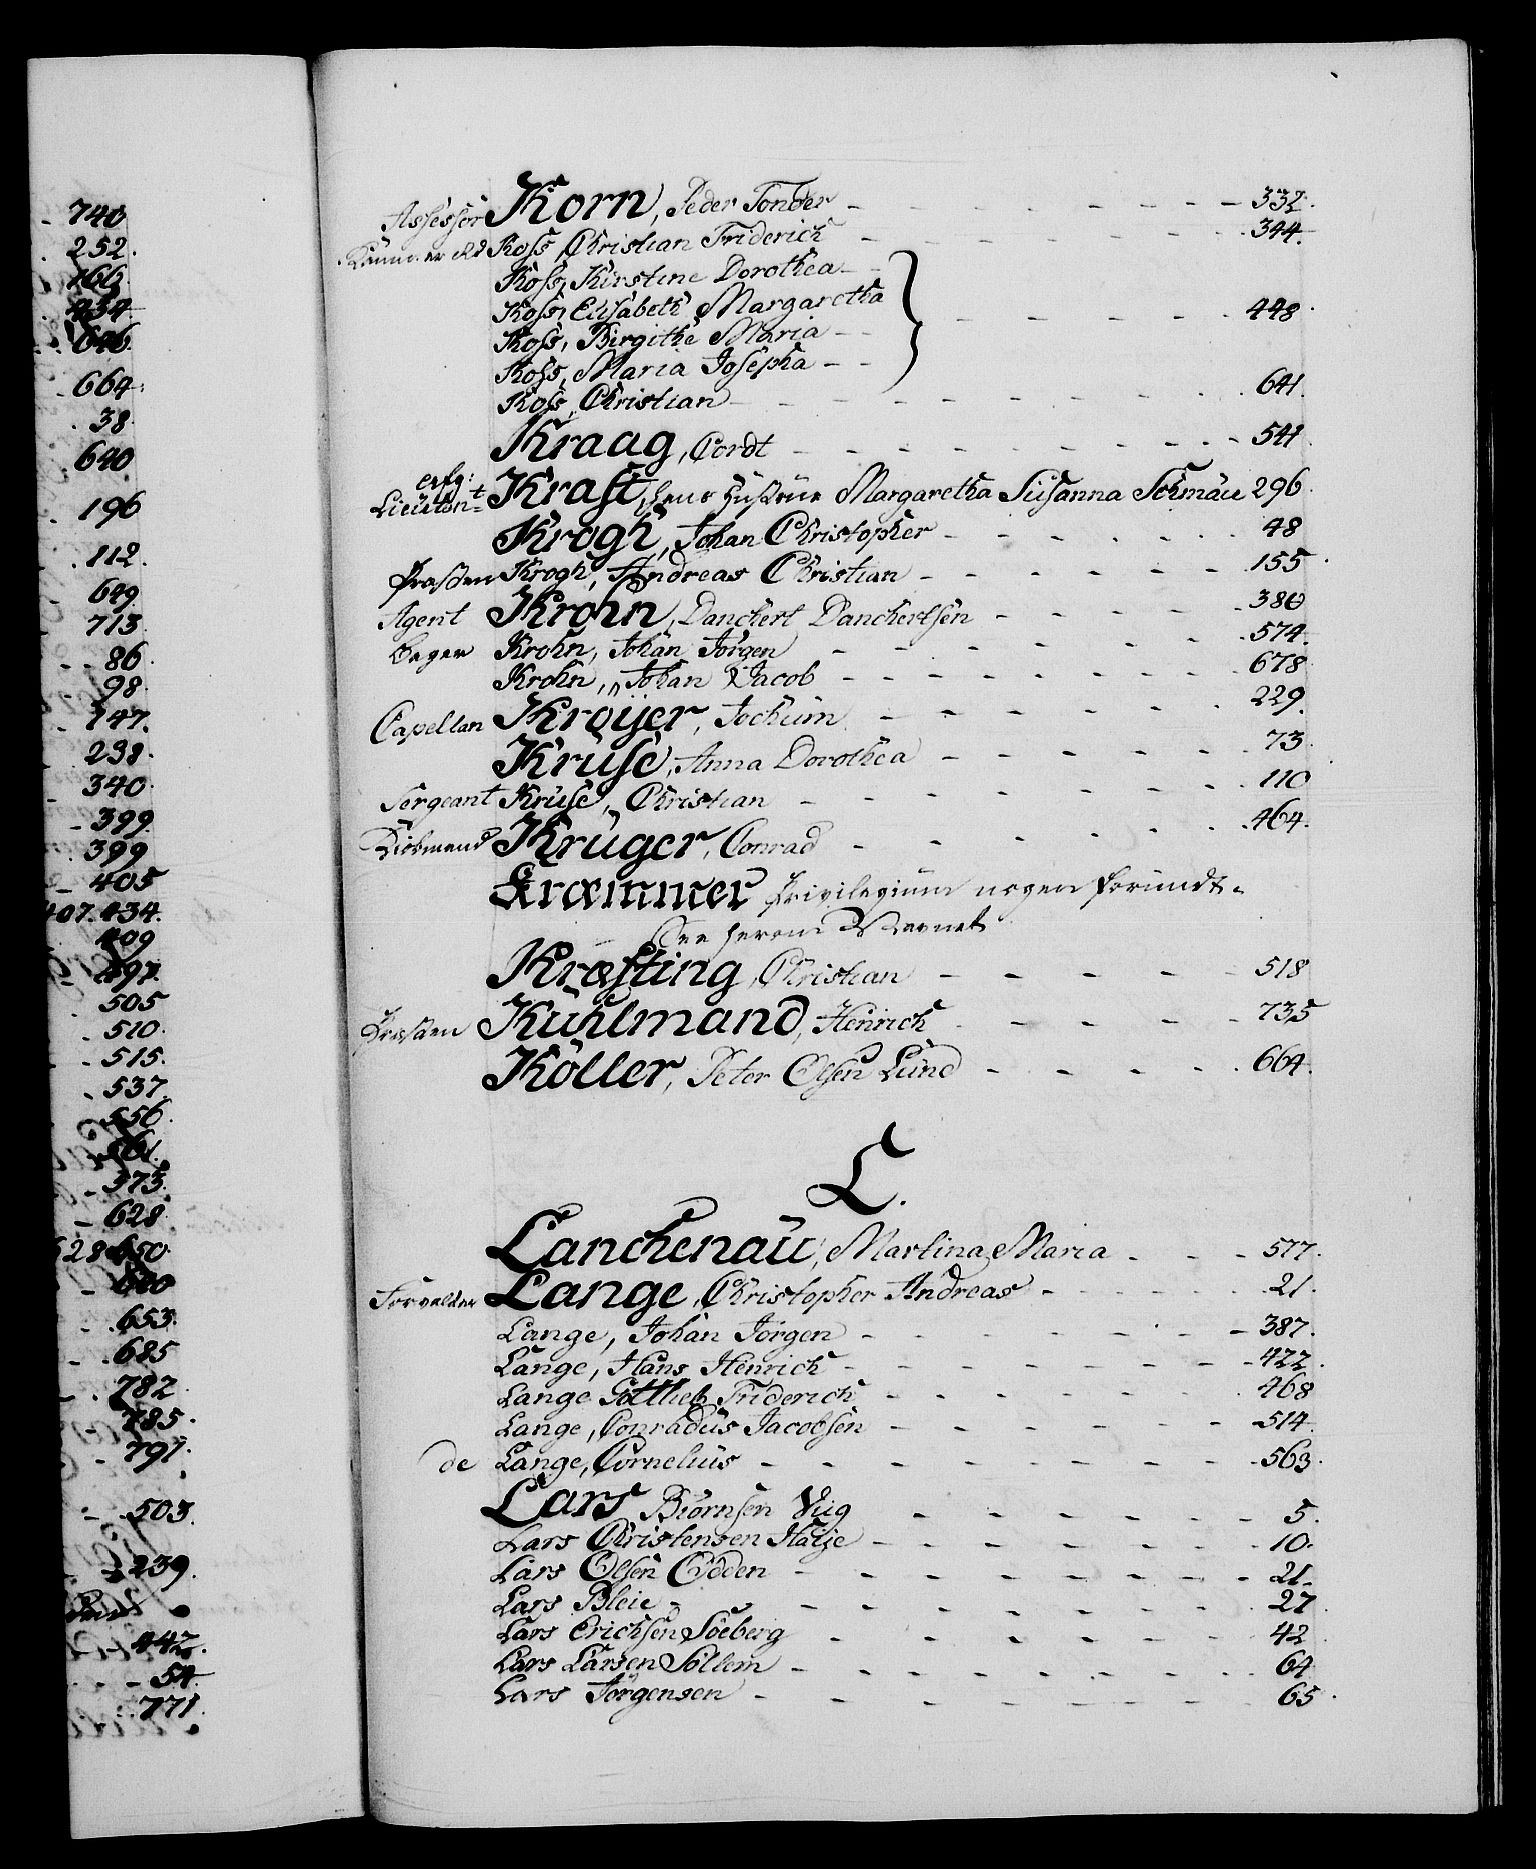 740
252.
166.
434
646.
664.
38.
640
196
112.
649
713
86
98.
747.
238.
340.
399
399
405
407. 434.
409
497.
505
510.
515.
537.
556.
561.
373.
628
650
640
653.
685
782
785.
791.
503.
239.
442.
54.
771.
Assessor Korn, Peder Tonder - 332.
Koss, Christian Friderich - 344.
Koss, Kirstine Dorothea
Koss, Elisabeth Margaretha - 448
Koss, Birgithe Maria
Koss, Maria Josepha
Koss, Christian - 641.
Kraag, Cordt - 541
Lieutn:t Kraft, hans Hustrue Margaretha Susanna Schmau 296
Krogh, Johan Christopher - 48
Præsten Krogh, Andreas Christian - 155
Agent Krohn, Danchert Danchertsen - 380
Krohn, Johan Jörgen - 574.
Krohn, Johan Jacob - 678
Capellan Kröijer, Jochum - 229.
Kruse, Anna Dorothea - 73
Sergeant Kruse, Christian - 110
Kiöbmand Kruger, Conrad - 464.
Kræmmer Privilegium
Kræfting, Christian - 518
Præsten Kuhlmand, Henrich - 735
Köller, Peter Olsen Lund - 664.
L.
Lanckenau, Martina Maria - 577.
Forvalter Lange, Christopher Andreas - 21.
Lange, Johan Jörgen - 387.
Lange, Hans Henrich - 422.
Lange Gottlieb Friderich - 468
Lange, Conradus Jacobsen - 514
de Lange, Cornelius - 563.
Lars Biörnsen Vug - 5.
Lars Christensen - 10.
Lars Olsen Odden - 21.
Lars Bleie - 27
Lars Erichsen Söeberg - 42
Lars Larsen Sollem - 64
Lars Jörgensen - 65